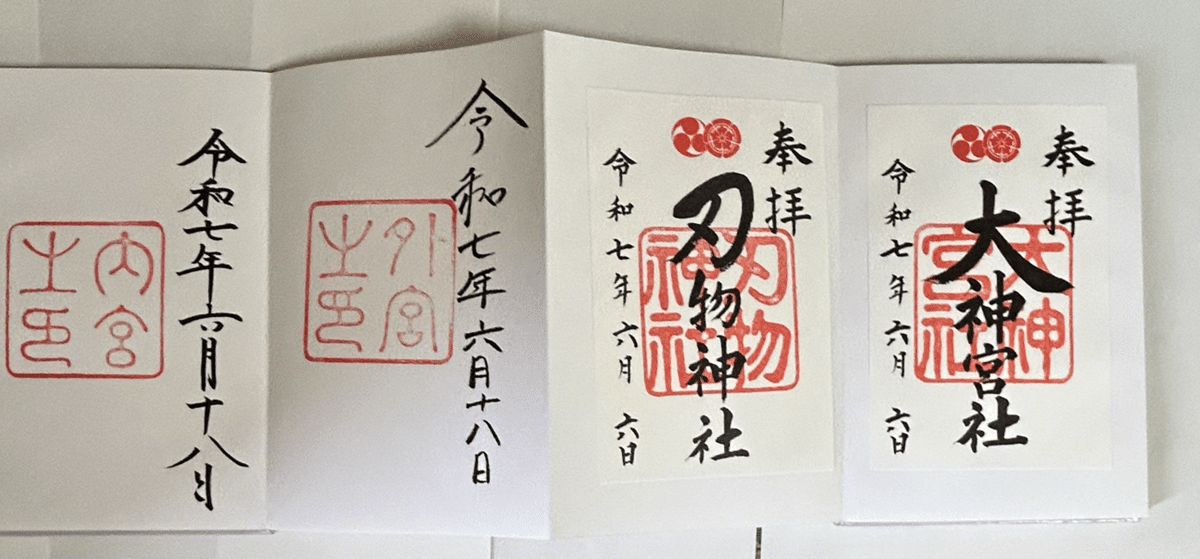 奉拝
大神宮社
大神
宮社
令和七年六月 六日
奉拝
刃物神社
刃物
神社
令和七年六月 六日
令和七年六月十八日
外宮
之印
令和七年六月十八日
内宮
之印